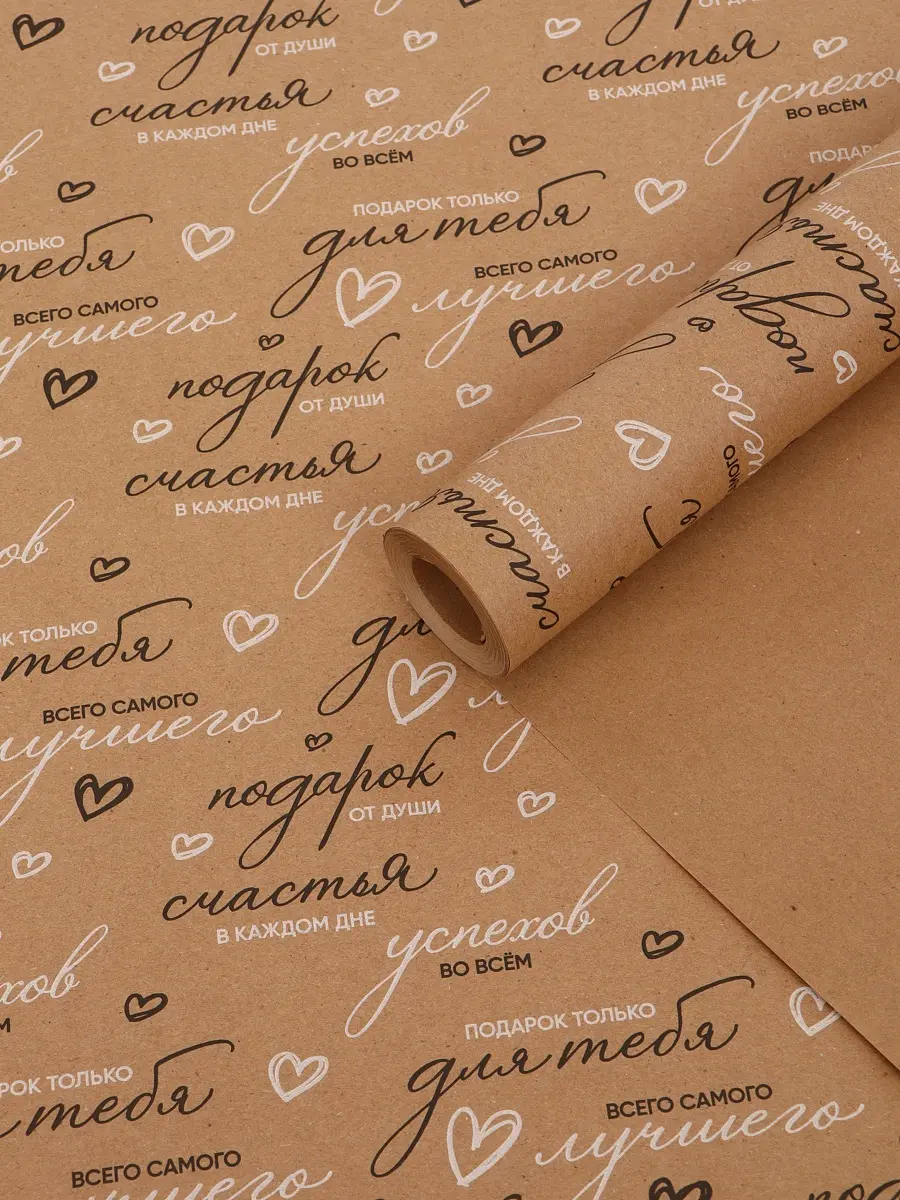 подарок
ОТ ДУШИ
счастья
В КАЖДОМ ДНЕ
счастья
В КАЖДОМ ДНЕ
успехов
ВО ВСЁМ
успехов
ВО ВСЁМ
ПОДАРОК ТОЛЬКО
для тебя
тебя
ВСЕГО САМОГО
лучшего
ВСЕГО САМОГО
лучшего
подарок
ОТ ДУШИ
счастья
В КАЖДОМ ДНЕ
В КАЖДОМ ДНЕ
счастья
ТОЛЬКО
тебя
ВСЕГО САМОГО
лучшего
подарок
ОТ ДУШИ
счастья
В КАЖДОМ ДНЕ
успехов
ВО ВСЁМ
ПОДАРОК ТОЛЬКО
для тебя
ТОЛЬКО
тебя
ВСЕГО САМОГО
лучшего
ВСЕГО САМОГО